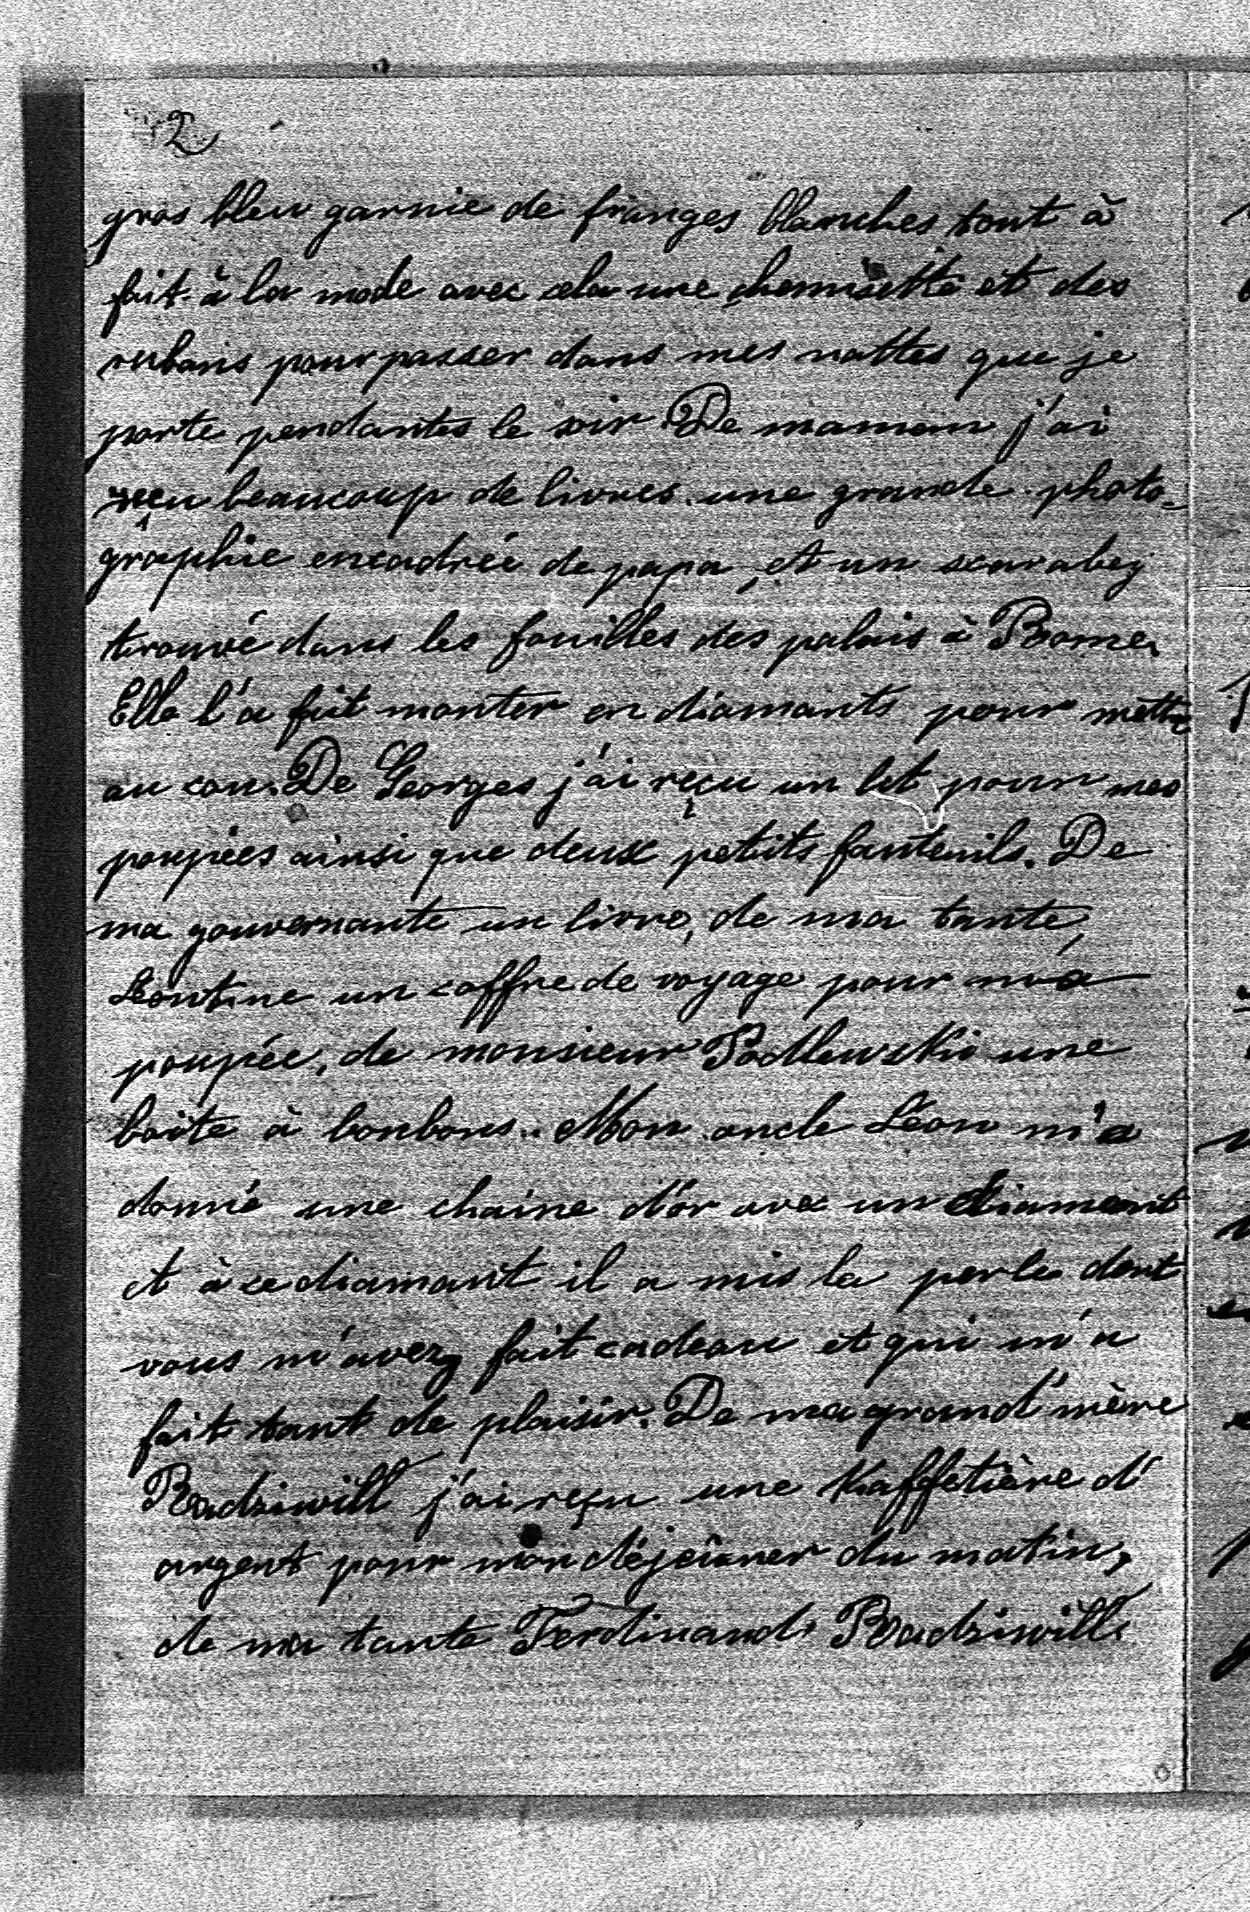 2
gros bleu garnie de franges blanches tout à
fait à la mode avec cela une chemisette et des
rubans pour passer dans mes nattes que je
porte pendantes le soir. De maman j'ai
reçu beaucoup de livres. une grande photo-
graphie encadrée de papa, et un scarabey
trouvé dans les fouilles des palais à Rome.
Elle l'a fait monter en diamants pour mettre
au cou. De Georges j'ai reçu un lit pour mes
poupées ainsi que deux petits fauteuils. De
ma gouvernante un livre, de ma tante,
Léontine un coffre de voyage pour ma
poupée, de monsieur Podlewski une
boite à bonbons. Mon oncle Léon m'a
donné une chaine d'or avec un diamant
et à ce diamant il a mis la perle dont
vous m'avez fait cadeau et qui m'a
fait tant de plaisir. De ma grand'mère
Radziwill j'ai reçu une Kaffetière d'
argent pour mon déjeûner du matin,
de ma tante Ferdinand Radziwill